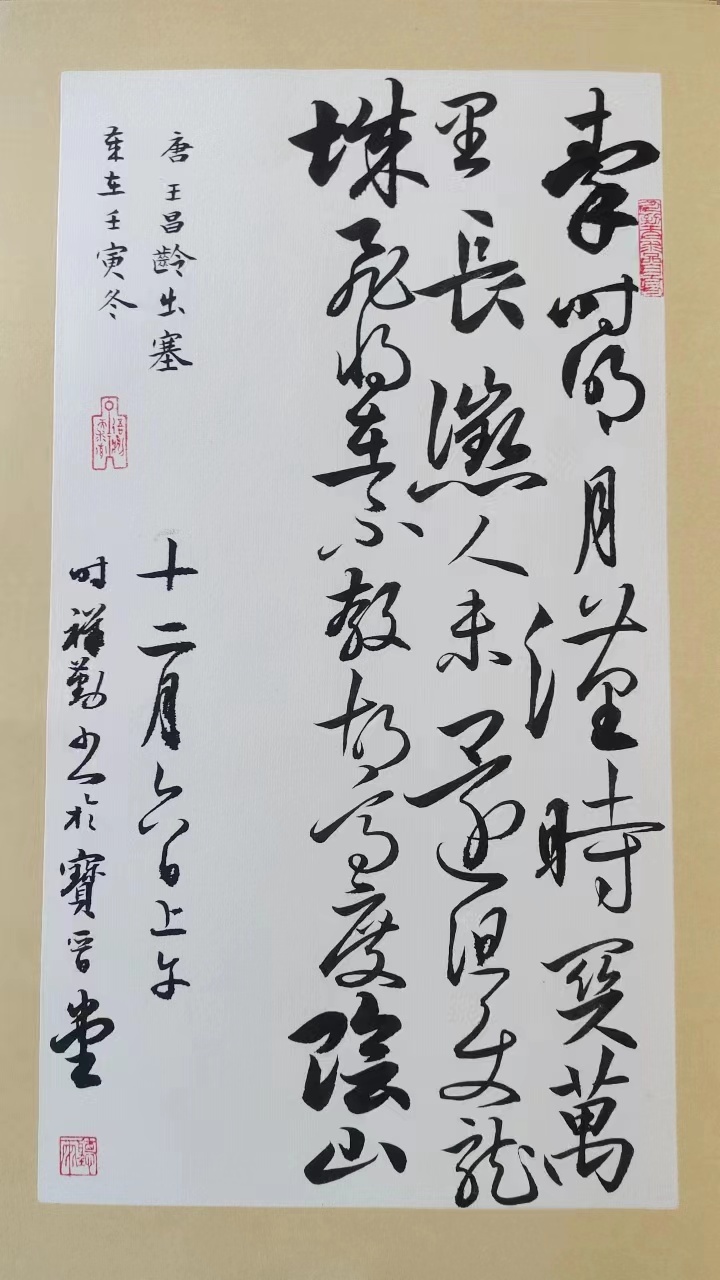 秦時明月漢時關萬
里長徵人未還但使龍
城飛將在不教胡馬度陰山
唐王昌齡出塞
歲在壬寅冬
十二月六日上午
时祥勤书於寶晉堂